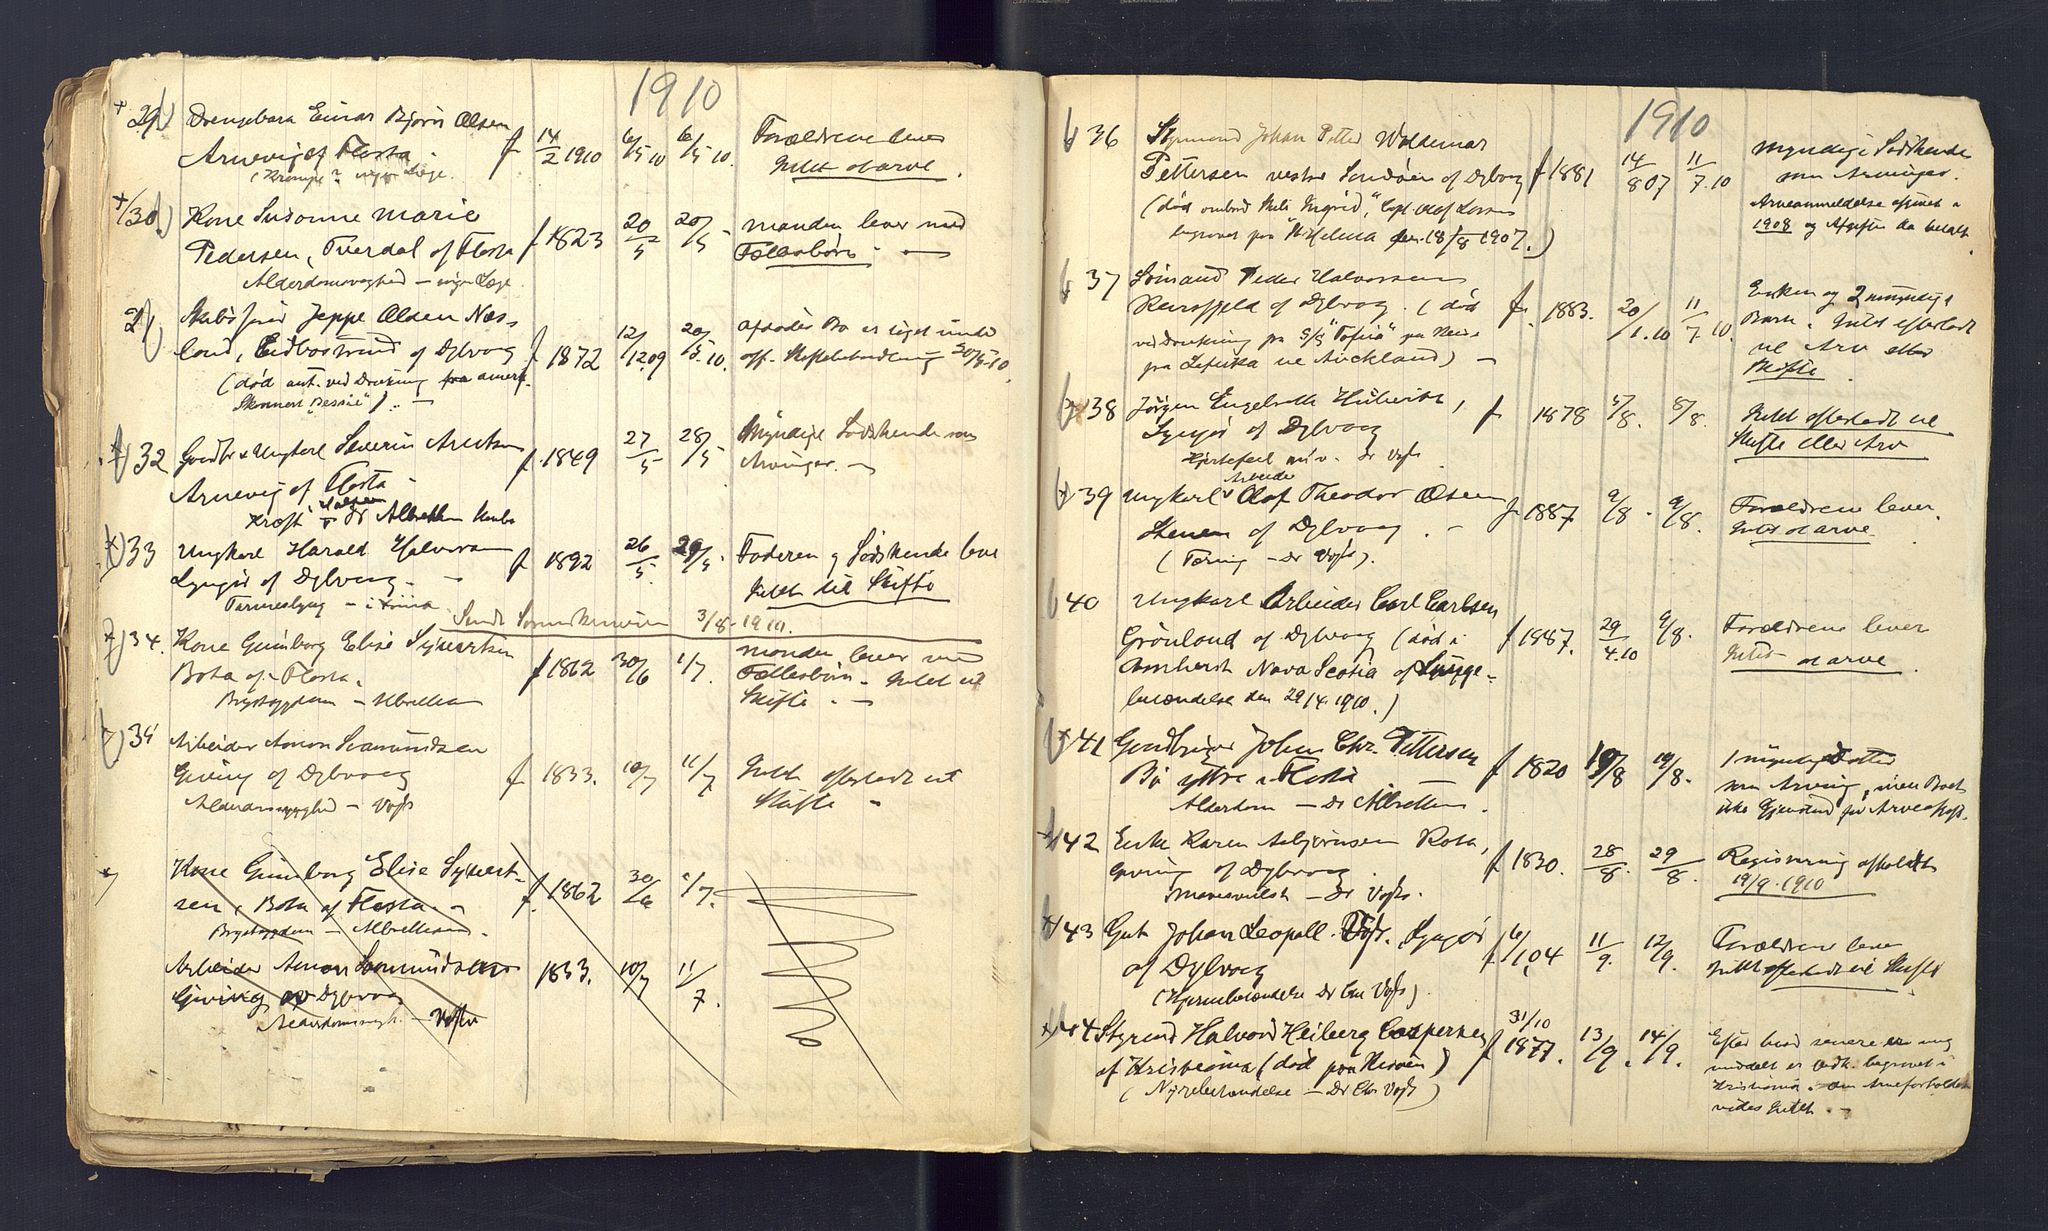 1910
29 Drengebarn Einar Bjørn Olsen f. 14/2 1910 6/5 10 6/5 10. Forældrene lever
Arnevig af Flosta Intet at arve.
(Krampe
30 Kone Susanne Marie f. 1823 20/5 20/5 manden lever med
Pedersen, Tverdal af Flosta Fællesbørn. —
Alderdomssvaghed — ingen Læge.
Skibsfører Jeppe Olsen Næs-
land, Eidbostrand af Dybvaag f 1872 12/12 09 20/5 10. afdødes Bo er taget under
off. Skiftebehandling 20/5 10.
(død ant. ved Drukning fra amerik.
Skonnert "Bessie"). —
32 Gaardbr. Ungkarl Severin f. 1849 27/5 28/5 Myndige Sødskende som
Arnevig af Flosta Arvinger. —
Kræft Dr Albrethsen
33 Ungkarl Harald Halvorsen f 1892 26/5. 29/5 Faderen og Sødskende leve
Lyngør af Dybvaag. — Intet til Skifte
3/8 1910.
34. Kone Gunborg Elise Syvertsen f 1862 30/6 1/7. manden lever med
Bota af Flosta. Fællesbørn. Intet til
Brystsygdom — Albrethsen Skifte. —
34 Arbeider Amon Samundsen
Gjeving af Dybvaag f 1833. 10/7 11/7 Intet efterladt til
Alderdomssvaghed — Vogt Skifte —
Kone Gunborg Elise Syvert-
sen, Bota af Flosta. — f. 1862 30/6 1/7.
Brystsygdom — Albrethsen.
Arbeider Amon Samundsen 1833. 10/7 11/7.
Gjeving af Dybvaag
Alderdomssvagh. — Vogt
1910
36 Styrmand Johan Petter Woldemar myndige Sødskende
Pettersen vestre Sandøen af Dybvaag f 1881 14/8 07 11/7. 10 som Arvinger.
(død ombord "Ingrid", Capt. Olof Larsen Arveanmeldelse afgivet i
begravet paa "Wilhelma den 18/8 1907.) 1908 og Afgiften da betalt.
37 Sømand Peder Halvorsen Enken og 2 umyndige
af Dybvaag. (død f. 1883. 20/1. 10 11/7. 10. Barn. Intet efterladt
ved Drukning fra S/S "Tofua" paa Reise til Arv eller
fra Lefuka til Auckland) — Skifte.
38 Jørgen Engelbreth f 1878 5/8. 8/8. Intet efterladt til
Lyngør af Dybvaag Skifte eller Arv
Hjertefeil — Dr Vogt.
39 Ungkarl Arbeider Olaf Theodor Olsen f. 1887 9/8. 9/8. Forældrene lever.
Stenen af Dybvaag — Intet at arve.
(Tæring — Dr Vogt).
40 Ungkarl Arbeider Carl Carlsen
Grønland af Dybvaag (død i f 1887. 29/4.10 9/8. Forældrene lever
Amherst Nova Scotia af Lunge- Intet at arve.
betændelse den 29/4 1910.)
41 Gaardbruger Johan Chr. Pettersen f 1820 19/8 19/8. 1 myndig Datter
Bø ytre i Flosta som Arving, men Boet
Alderdom — Dr Albrethsen. ikke Gjenstand for Arveafgift.
42 Enke Karen Asbjørnsen Rota, f 1830. 28/8. 29/8. Registrering afholdt
Gjeving af Dybvaag 19/9. 1910
Mavesvulst — Dr Vogt.
43 Gut Johan Leopold Lyngør f 6/1 04 11/9. 12/9. Forældrene lever
af Dybvaag Intet efterladt til Skifte
(Hjernebetændelse Dr Chr Vogt).
44 Styrmd Halvord Heiberg Caspersen f 31/10 1877. 13/9. 14/9. Efter hvad senere er mig
af Kristiania (død paa Risøen) meddelt er Vedk. begravet i
(Nyrebetændelse — Dr Chr Vogt) Kristiania. om Arveforholdet
vides Intet. —